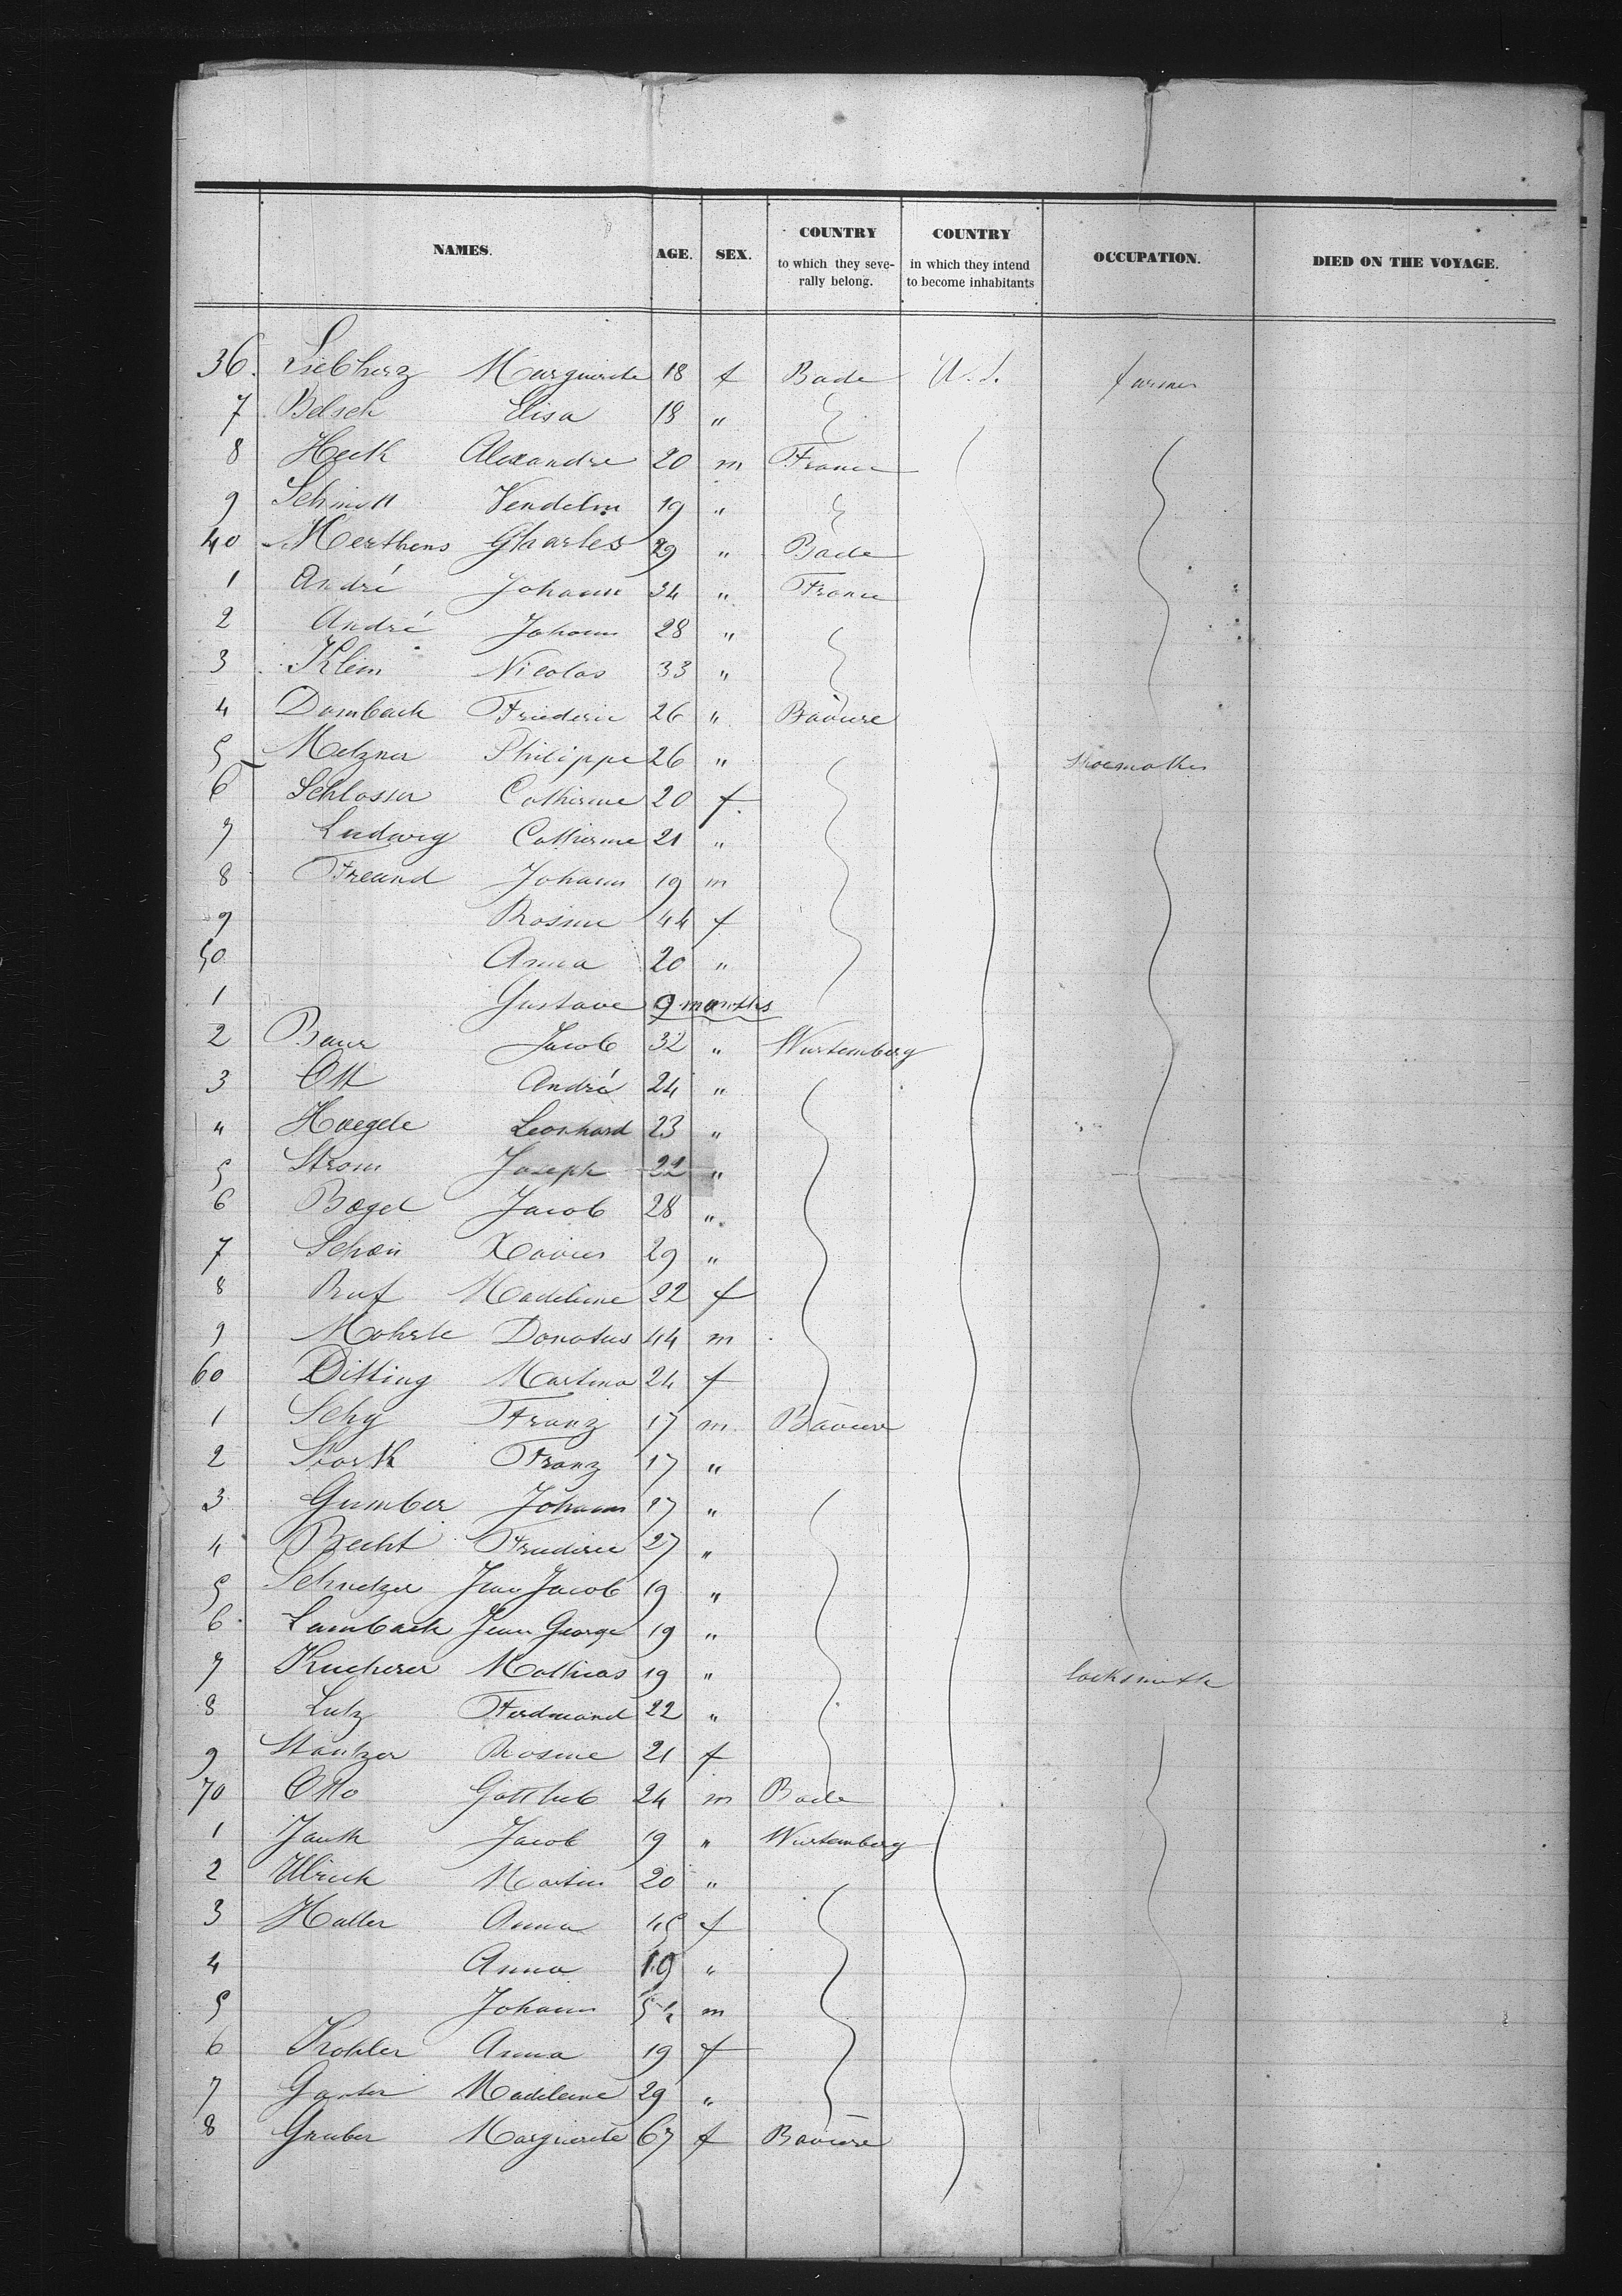 NAMES. AGE. SEX. COUNTRY to which they seve- rally belong. COUNTRY in which they intend to become inhabitants OCCUPATION. DIED ON THE VOYAGE.
36. Liebherz Marguerite 18 f Bade U. S. farmer
7 Belsch Elisa 18 "
8 Heck Alexandre 20 m France
9 Schmitt Vendelin 19 "
40 Merthens Charles 29 " Bade
1 André Johann 34 " France
2 André Johann 28 "
3 Klein Nicolas 33 "
4 Dambach Friederic 26 " Bavière
5 Metzner Philippe 26 " Shoemaker
6 Schlosser Catherine 20 f.
7 Ludwig Catherine 21 "
8 Freund Johann 19 m
9 Rosine 44 f
50 Anna 20 "
1 Gustave 9 months
2 Baur Jacob 32 " Wurtemberg
3 Ott André 24 "
4 Haegele Leonhard 23 "
5 Strom Joseph 22 "
6 Bogel Jacob 28 "
7 Schön Xavier 29 "
8 Ruf Madeleine 22 f
9 Mohrle Donatus 44 m
60 Ditting Martina 24 f
1 Sehy Franz 17 m Bavière
2 Stark Franz 17 "
3 Gumber Johann 17 "
4 Brecht Friederic 27 "
5 Schnetzer Jean Jacob 19 "
6 Lambach Jean George 19 "
7 Kucherer Mathias 19 " locksmith
8 Lutz Ferdinand 22 "
9 Stantzer Rosine 21 f
70 Otto Gottlieb 24 m Bade
1 Jauth Jacob 19 " Wurtemberg
2 Ulrich Martin 20 "
3 Haller Anna 45 f
4 Anna 19 "
5 Johann 5 ½ m
6 Kohler Anna 19 f
7 Ganter Madeleine 29 "
8 Gruber Marguerite 67 f Bavière